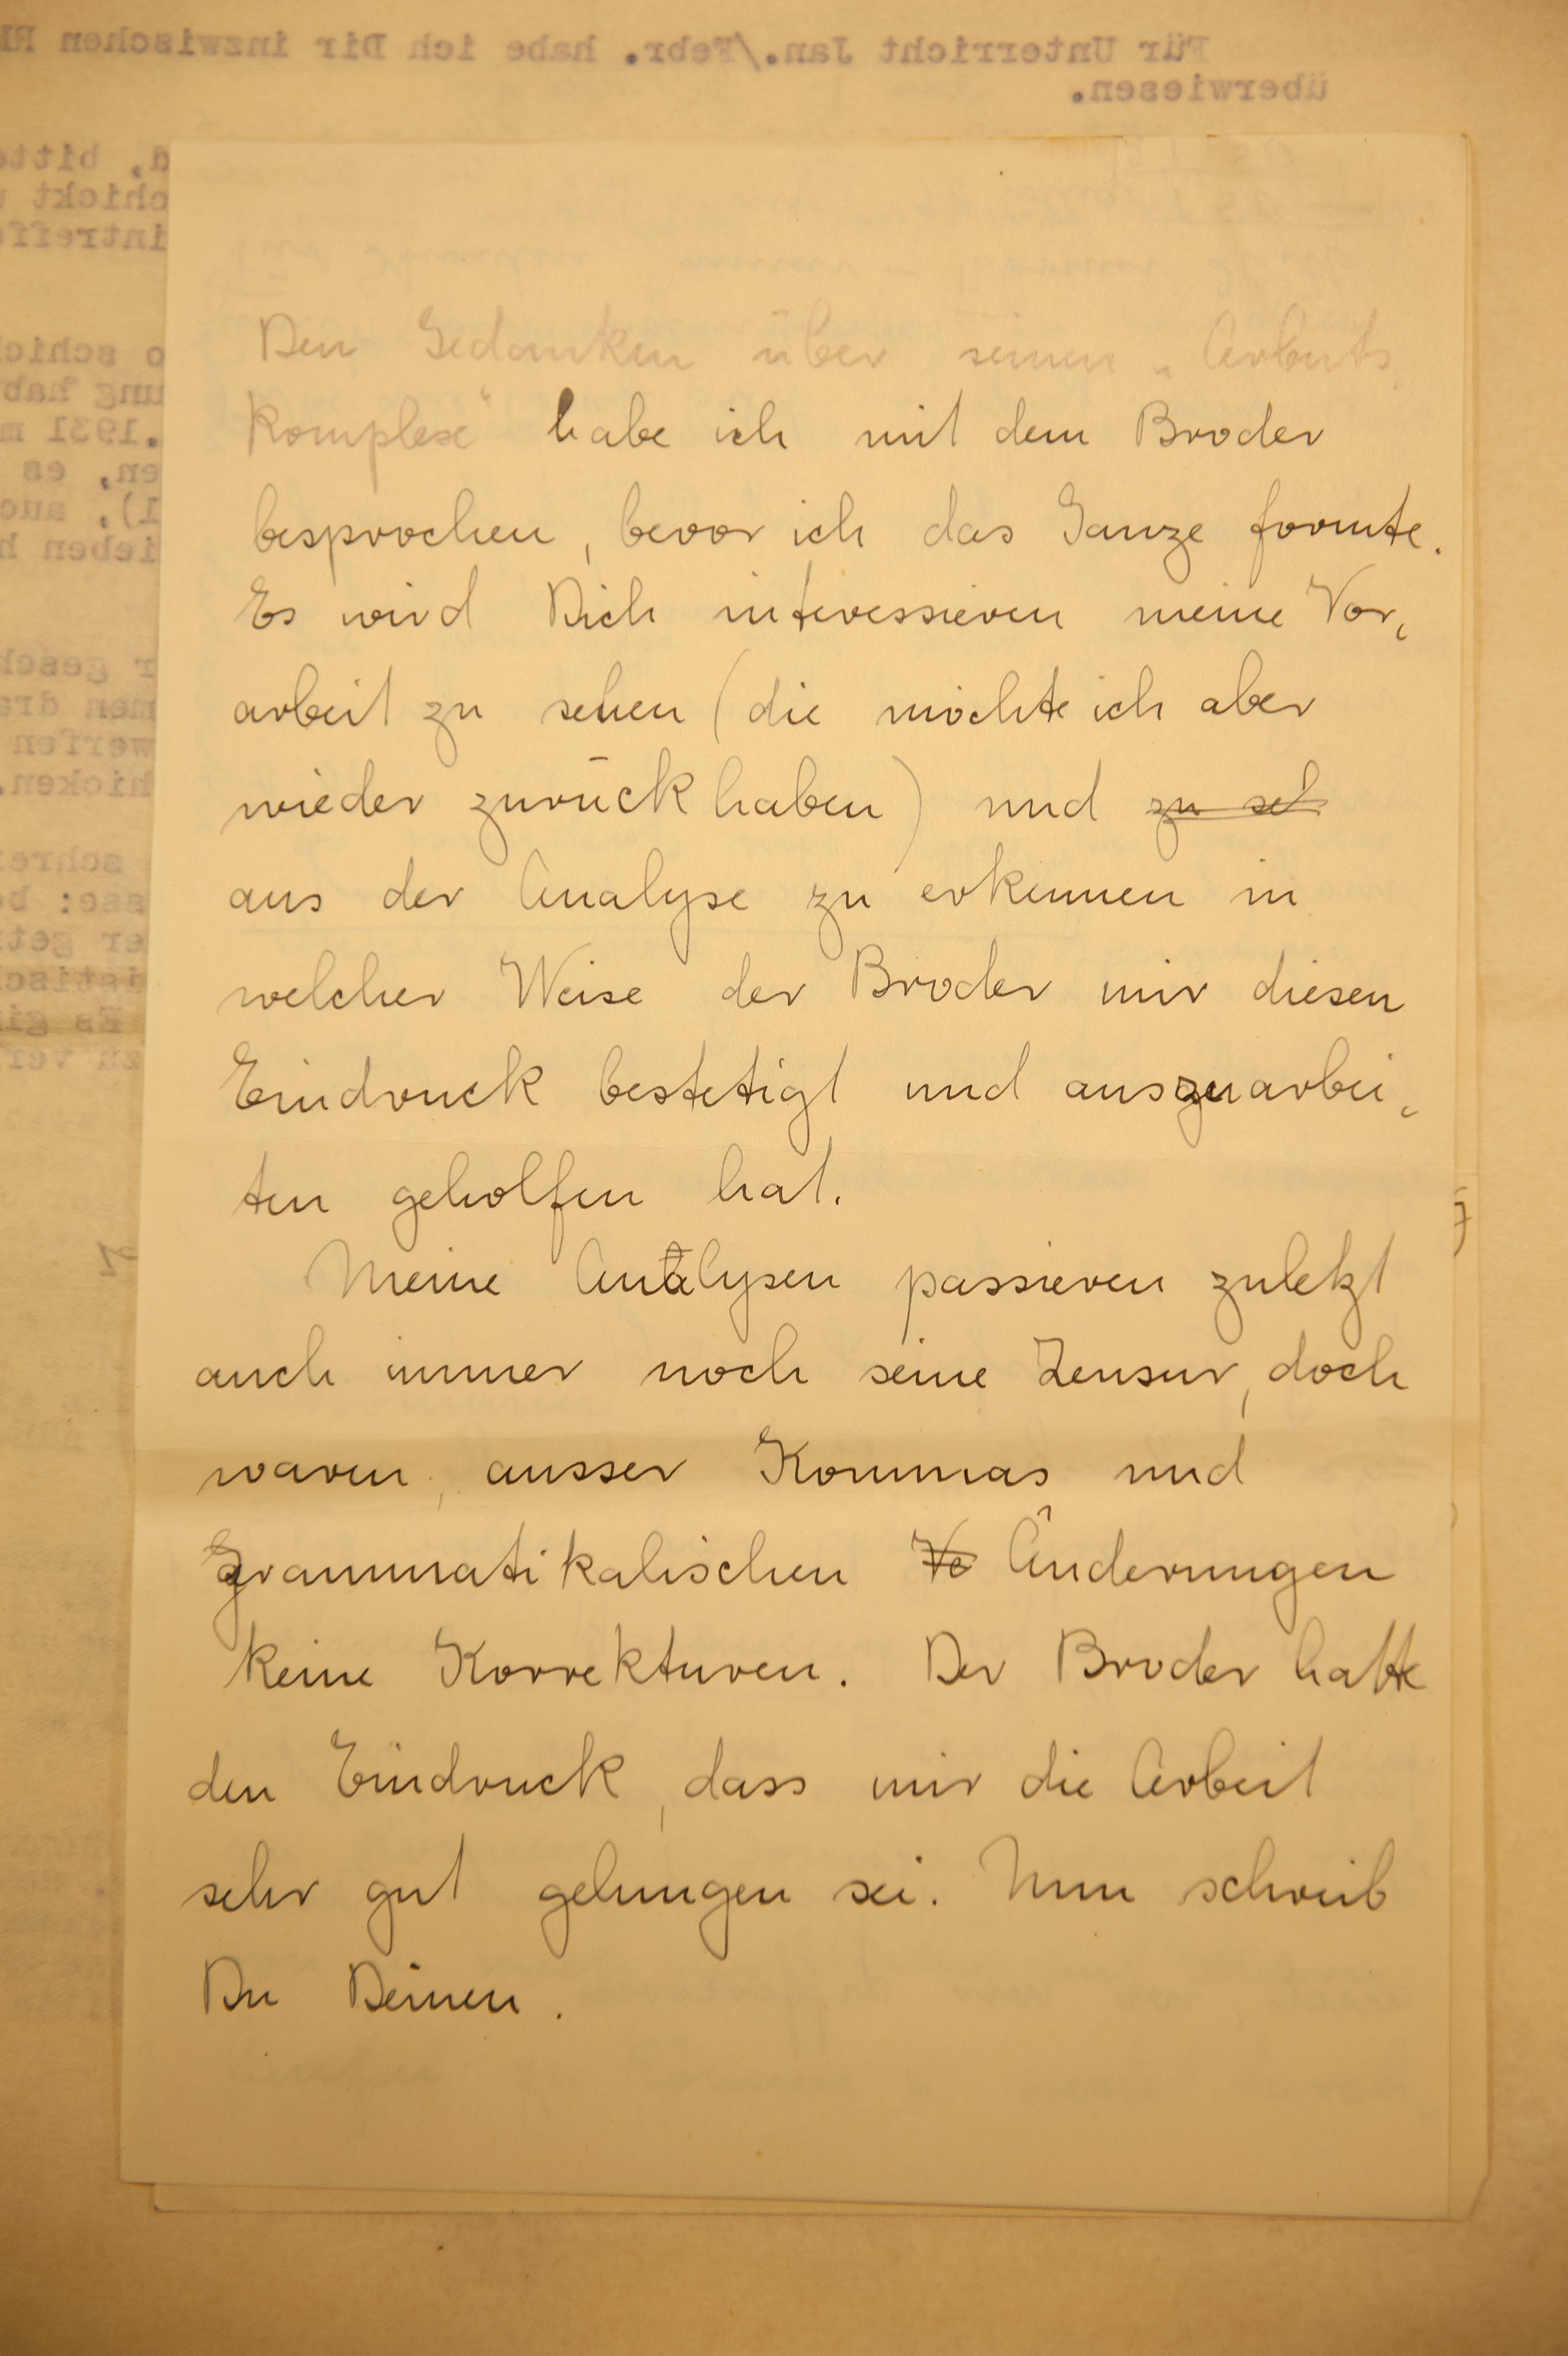 Für Unterricht Jan./Febr. habe ich Dir inzwischen
überwiesen.
Den Gedanken über seinen „Arbeits-
komplex" habe ich mit dem Broder
besprochen, bevor ich das Ganze formte.
Es wird Dich interessieren meine Vor-
arbeit zu sehen (die möchte ich aber
wieder zurück haben) und zu seh
aus der Analyse zu erkennen in
welcher Weise der Broder mir diesen
Eindruck bestetigt und auszuarbei-
ten geholfen hat.
Meine Analysen passieren zuletzt
auch immer noch seine Zensur, doch
waren, ausser Kommas und
Grammatikalischen Ve Änderungen
keine Korrekturen. Der Broder hatte
den Eindruck, dass mir die Arbeit
sehr gut gelungen sei. Nun schreib
Du Deinen.